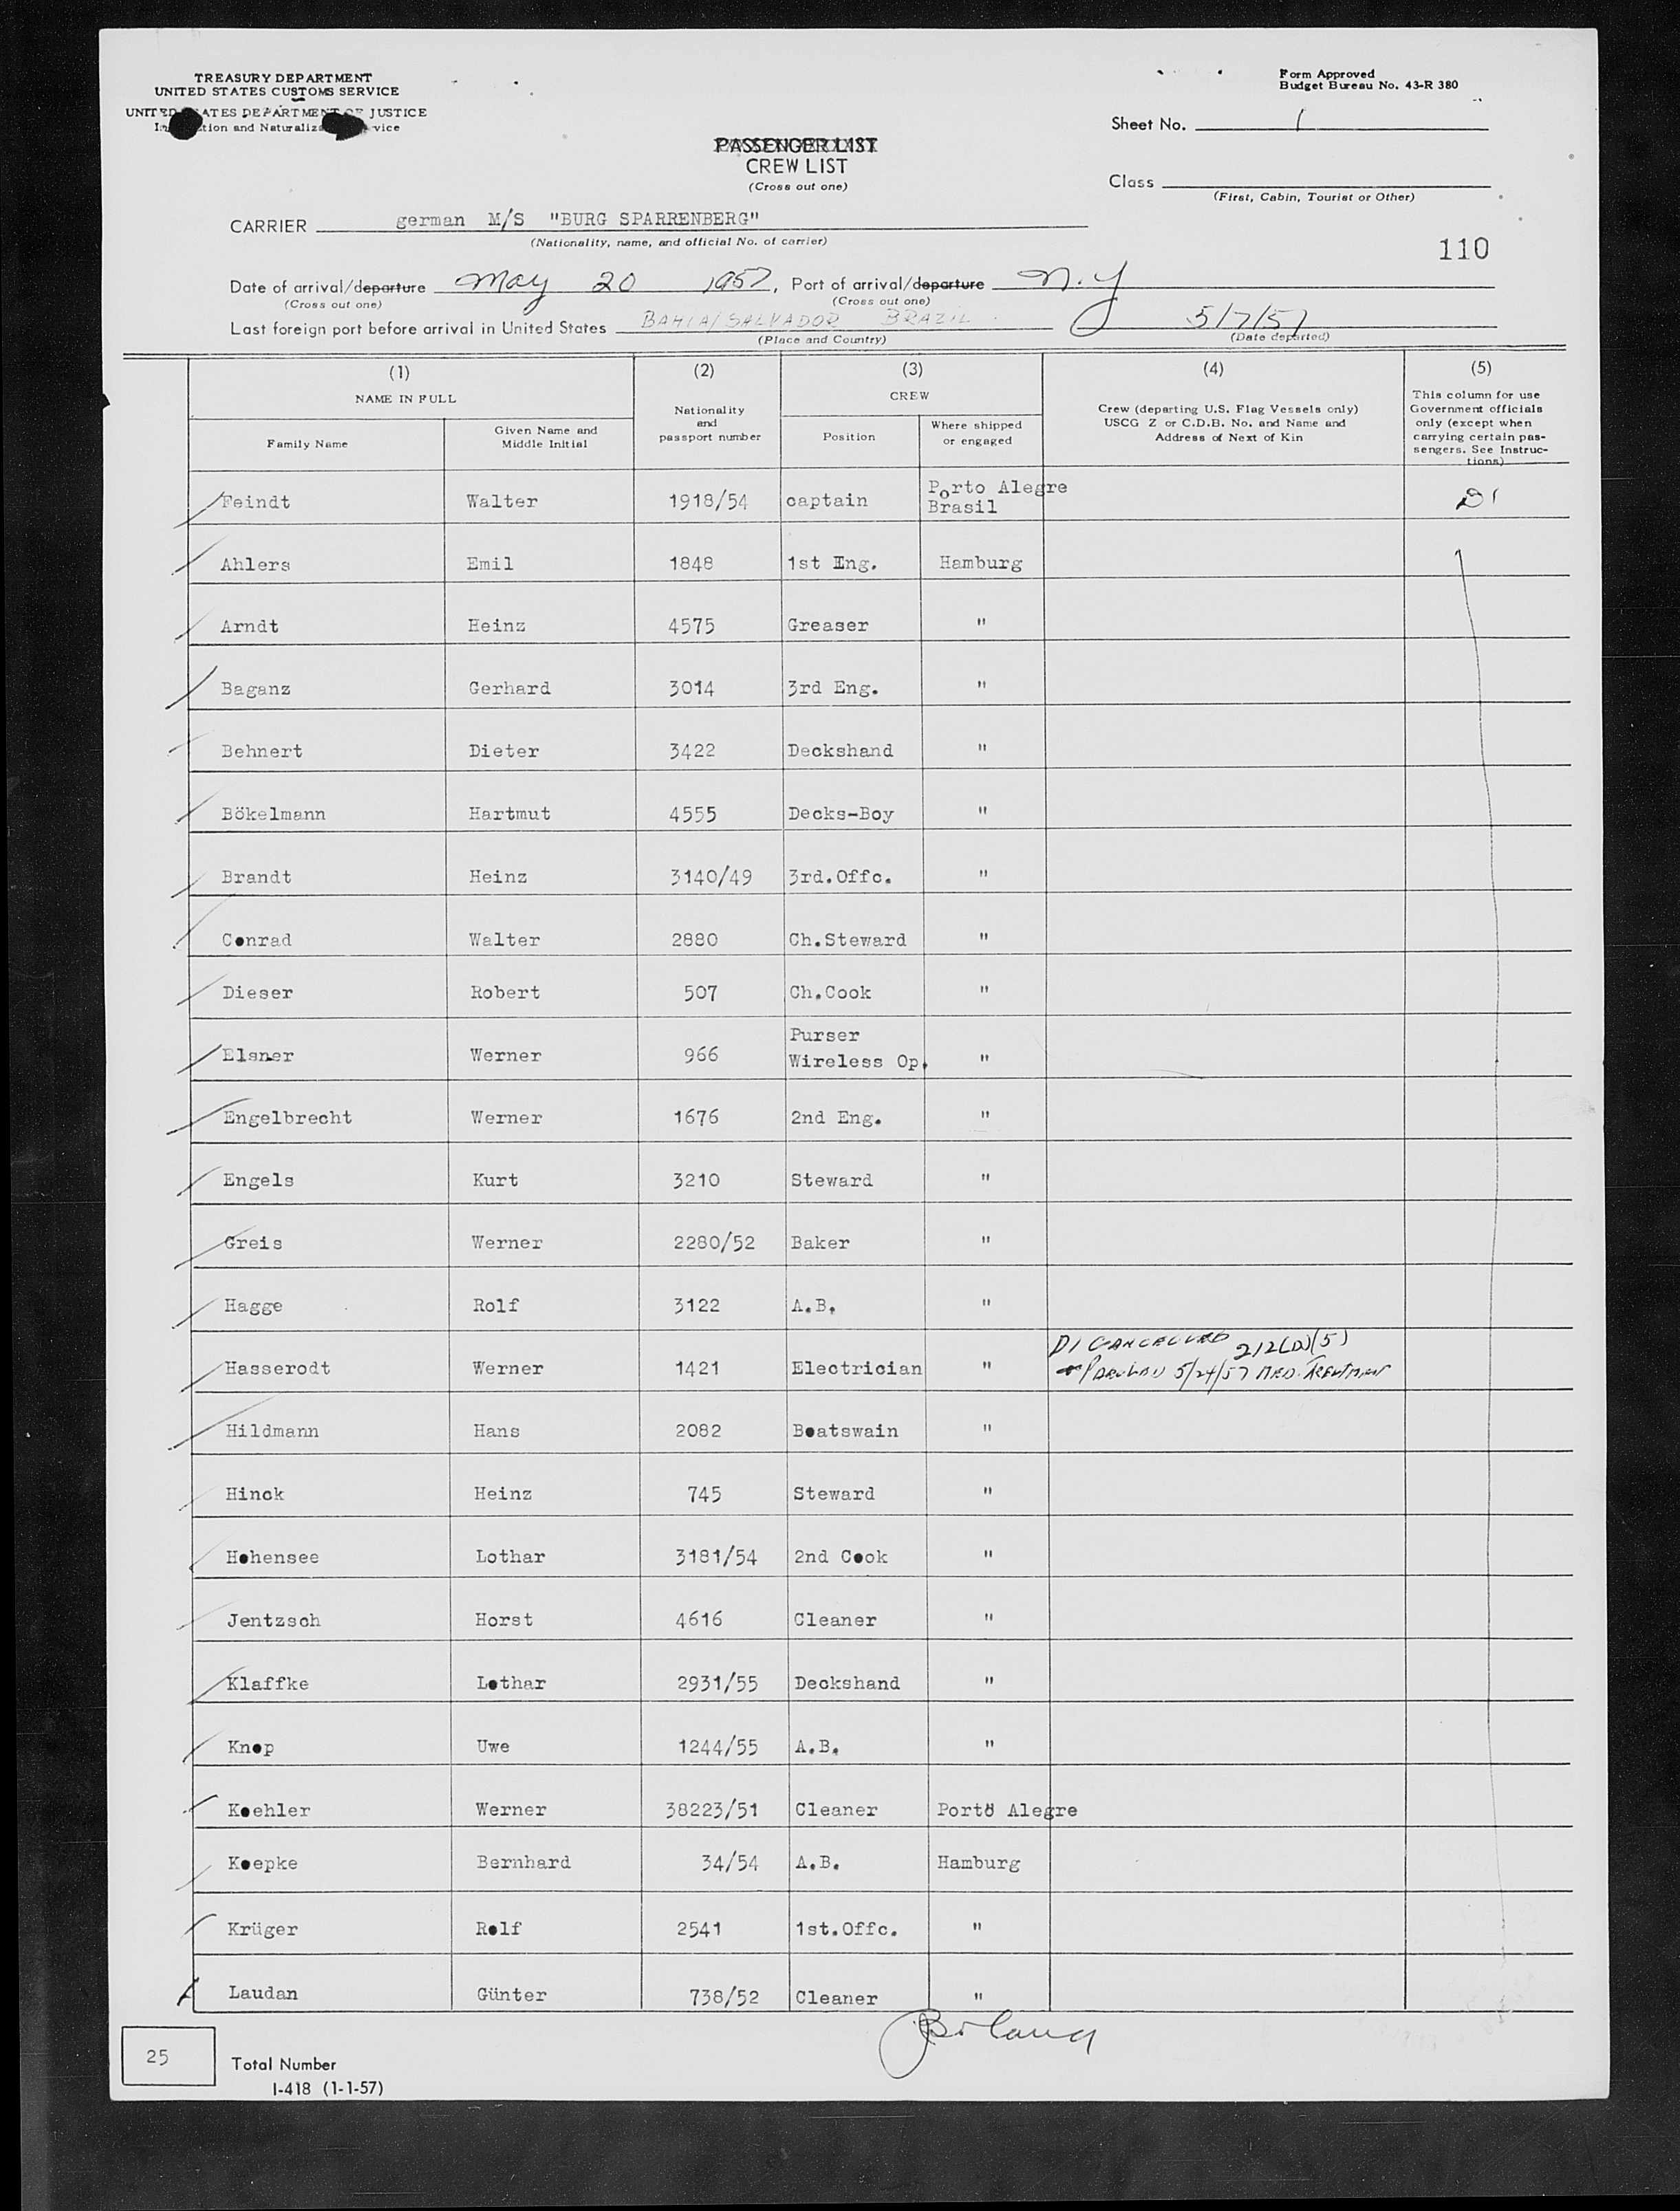 TREASURY DEPARTMENT
UNITED STATES CUSTOMS SERVICE
UNITED STATES DEPARTMENT OF JUSTICE
Form Approved
Budget Bureau No. 43-R 380
Sheet No. 1
PASSENGER LIST
CREW LIST
(Cross out one)
Class
(First, Cabin, Tourist or Other)
CARRIER german M/S "BURG SPARRENBERG"
(Nationality, name, and official No. of carrier)
110
Date of arrival/departure May 20 1957, Port of arrival/departure N.Y
(Cross out one) (Cross out one)
Last foreign port before arrival in United States BAHIA/SALVADOR BRAZIL 5/7/57
(Place and Country) (Date departed)
(1) (2) (3) (4) (5)
NAME IN FULL
Family Name
Given Name and
Middle Initial
Nationality
and
passport number
CREW
Position
Where shipped
or engaged
Crew (departing U.S. Flag Vessels only)
USCG Z or C.D.B. No. and Name and
Address of Next of Kin
This column for use
Government officials
only (except when
carrying certain pas-
sengers. See Instruc-
tions)
Feindt Walter 1918/54 captain Porto Alegre Brasil D1
Ahlers Emil 1848 1st Eng. Hamburg
Arndt Heinz 4575 Greaser "
Baganz Gerhard 3014 3rd Eng. "
Behnert Dieter 3422 Deckshand "
Bökelmann Hartmut 4555 Decks-Boy "
Brandt Heinz 3140/49 3rd.Offc. "
Conrad Walter 2880 Ch.Steward "
Dieser Robert 507 Ch.Cook "
Elsner Werner 966 Purser Wireless Op. "
Engelbrecht Werner 1676 2nd Eng. "
Engels Kurt 3210 Steward "
Greis Werner 2280/52 Baker "
Hagge Rolf 3122 A.B. "
Hasserodt Werner 1421 Electrician " D1 CANCELLED 212(D)(5)
PAROLED 5/24/57 MED. TREATMENT
Hildmann Hans 2082 Boatswain "
Hinck Heinz 745 Steward "
Hohensee Lothar 3181/54 2nd Cook "
Jentzsch Horst 4616 Cleaner "
Klaffke Lothar 2931/55 Deckshand "
Knop Uwe 1244/55 A.B. "
Koehler Werner 38223/51 Cleaner Porto Alegre
Koepke Bernhard 34/54 A.B. Hamburg
Krüger Rolf 2541 1st.Offc. "
Laudan Günter 738/52 Cleaner "
25
Total Number
I-418 (1-1-57)